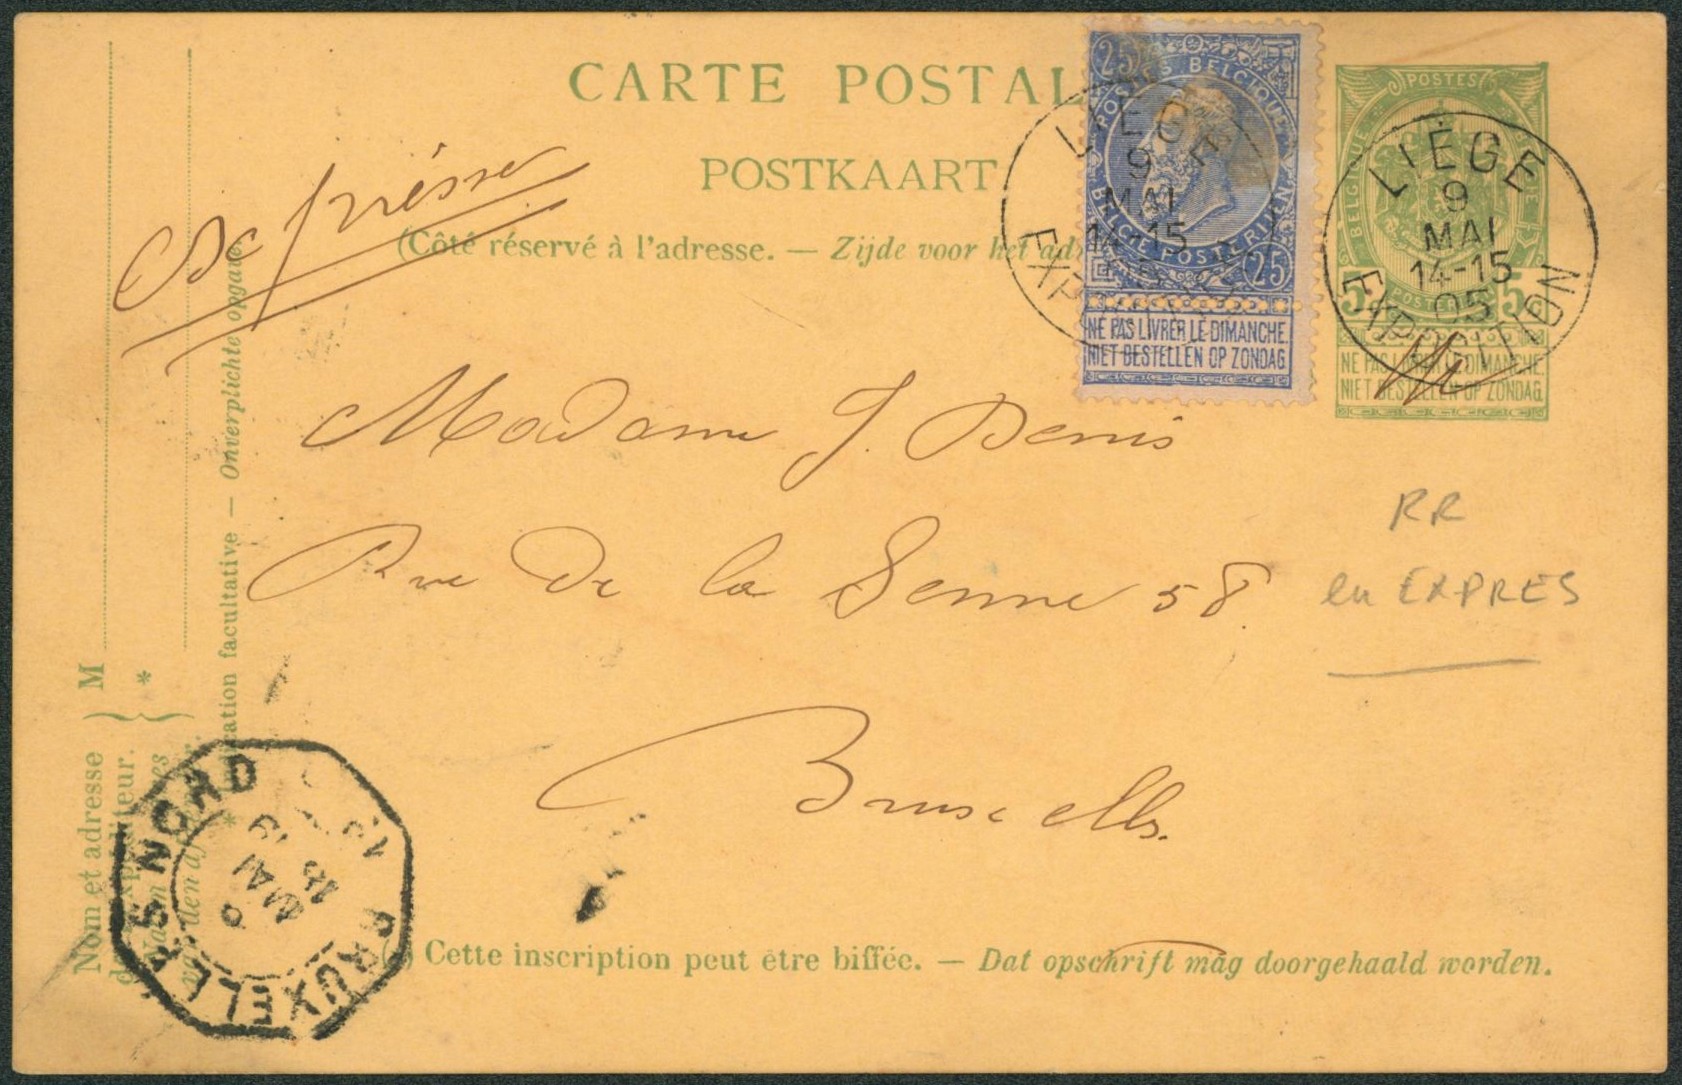 CARTE POSTAL
POSTKAART
(Côté réservé à l'adresse. — Zijde voor het adr
Exprès
25
POSTES BELGIQUE
BELGIE POSTERIJEN
25
NE PAS LIVRER LE DIMANCHE.
NIET BESTELLEN OP ZONDAG
LIÈGE
9
MAI
14-15
EXPOSITION
POSTES
BELGIQUE
5 5
NE PAS LIVRER LE DIMANCHE.
NIET BESTELLEN OP ZONDAG.
LIÈGE
9
MAI
14-15
05
EXPOSITION
Madame J. Denis
Rue de la Senne 58.
Bruxelles.
RR
en EXPRES
M
*
Nom et adresse
de l'expéditeur.
* Indication facultative — Onverplichte opgave.
BRUXELLES NORD
9
MAI
Cette inscription peut être biffée. — Dat opschrift mag doorgehaald worden.